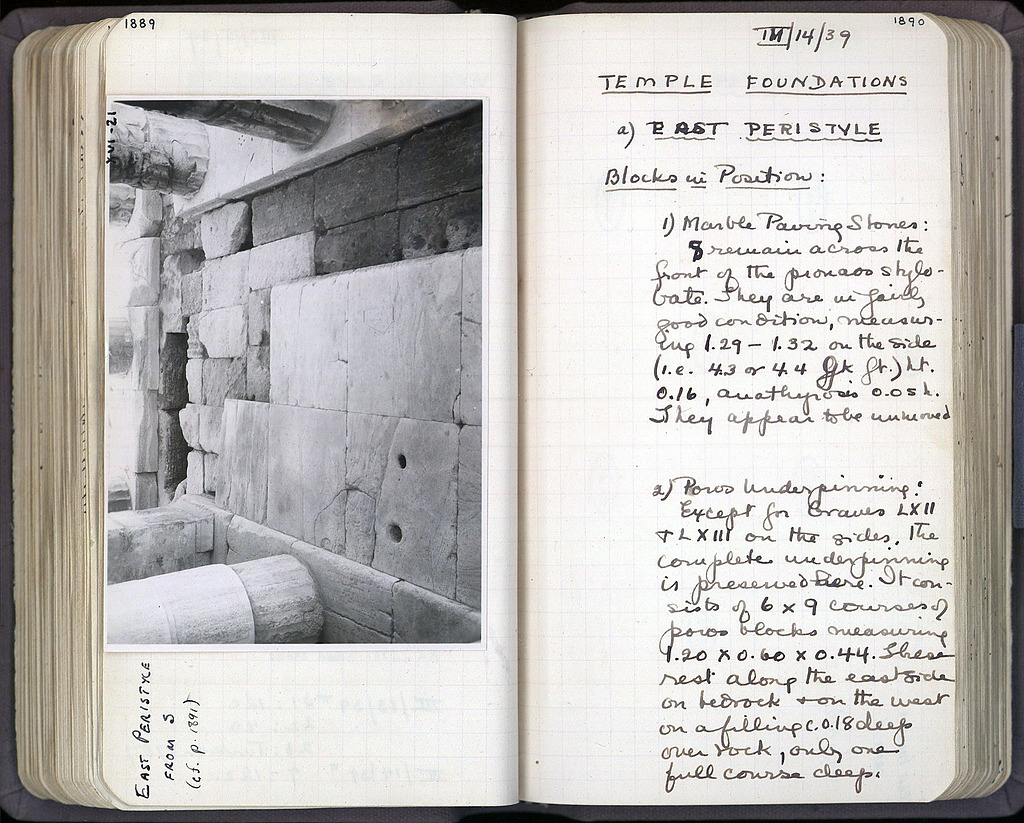 1889
XVI-21
EAST PERISTYLE
FROM S
(cf. p. 1891)
1890
III/14/39
TEMPLE FOUNDATIONS
a) EAST PERISTYLE
Blocks in Position:
1) Marble Paving Stones:
8 remain across the
front of the pronaos stylo-
bate. They are in fairly
good condition, measur-
ing 1.29 – 1.32 on the side
(i.e. 4.3 or 4.4 Gk ft.) ht.
0.16, anathyrosis 0.05 h.
They appear to be unmoved
2) Poros Underpinning:
Except for Graves LXII
+ LXIII on the sides, the
complete underpinning
is preserved here. It con-
sists of 6 x 9 courses of
poros blocks measuring
1.20 x 0.60 x 0.44. These
rest along the east side
on bedrock + on the west
on a filling c. 0.18 deep
over rock, only one
full course deep.